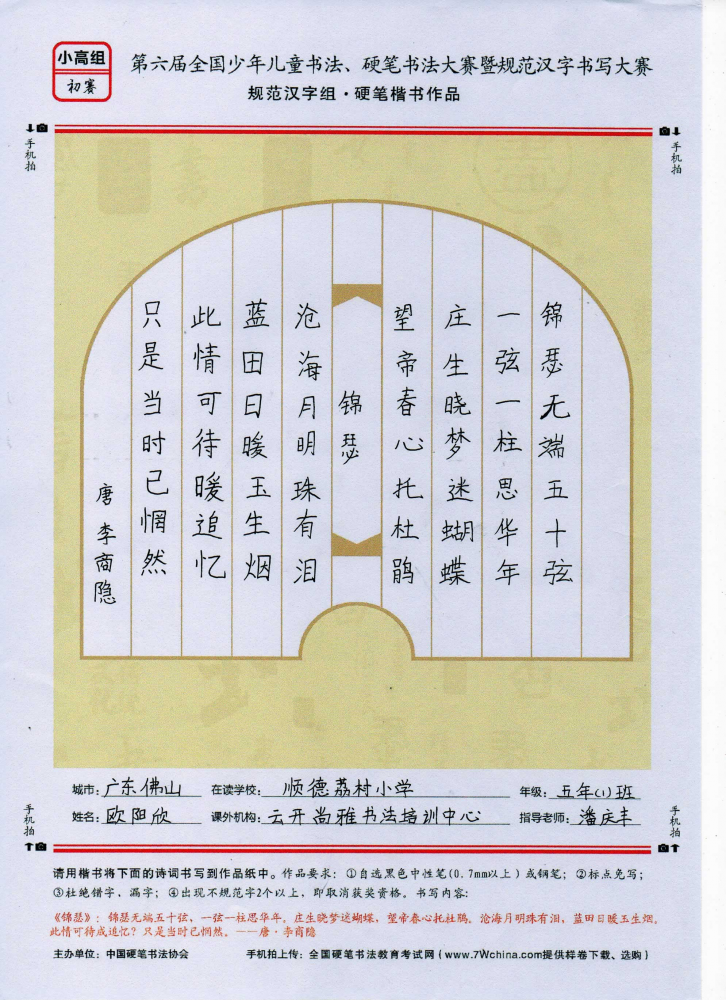 小高组
初赛
第六届全国少年儿童书法、硬笔书法大赛暨规范汉字书写大赛
规范汉字组·硬笔楷书作品
手机拍
手机拍
锦瑟无端五十弦
一弦一柱思华年
庄生晓梦迷蝴蝶
望帝春心托杜鹃
锦瑟
沧海月明珠有泪
蓝田日暖玉生烟
此情可待暖追忆
只是当时已惘然
唐 李商隐
城市:广东佛山 在读学校:顺德荔村小学 年级:五年(1)班
姓名:欧阳欣 课外机构:云开尚雅书法培训中心 指导老师:潘庆丰
手机拍
手机拍
请用楷书将下面的诗词书写到作品纸中。作品要求:①自选黑色中性笔(0.7mm以上)或钢笔;②标点免写;
③杜绝错字,漏字;④出现不规范字2个以上,即取消获奖资格。书写内容:
《锦瑟》:锦瑟无端五十弦,一弦一柱思华年。庄生晓梦迷蝴蝶,望帝春心托杜鹃。沧海月明珠有泪,蓝田日暖玉生烟。
此情可待成追忆?只是当时已惘然。——唐·李商隐
主办单位:中国硬笔书法协会 手机拍上传:全国硬笔书法教育考试网(www.7Wchina.com提供样卷下载、选购)